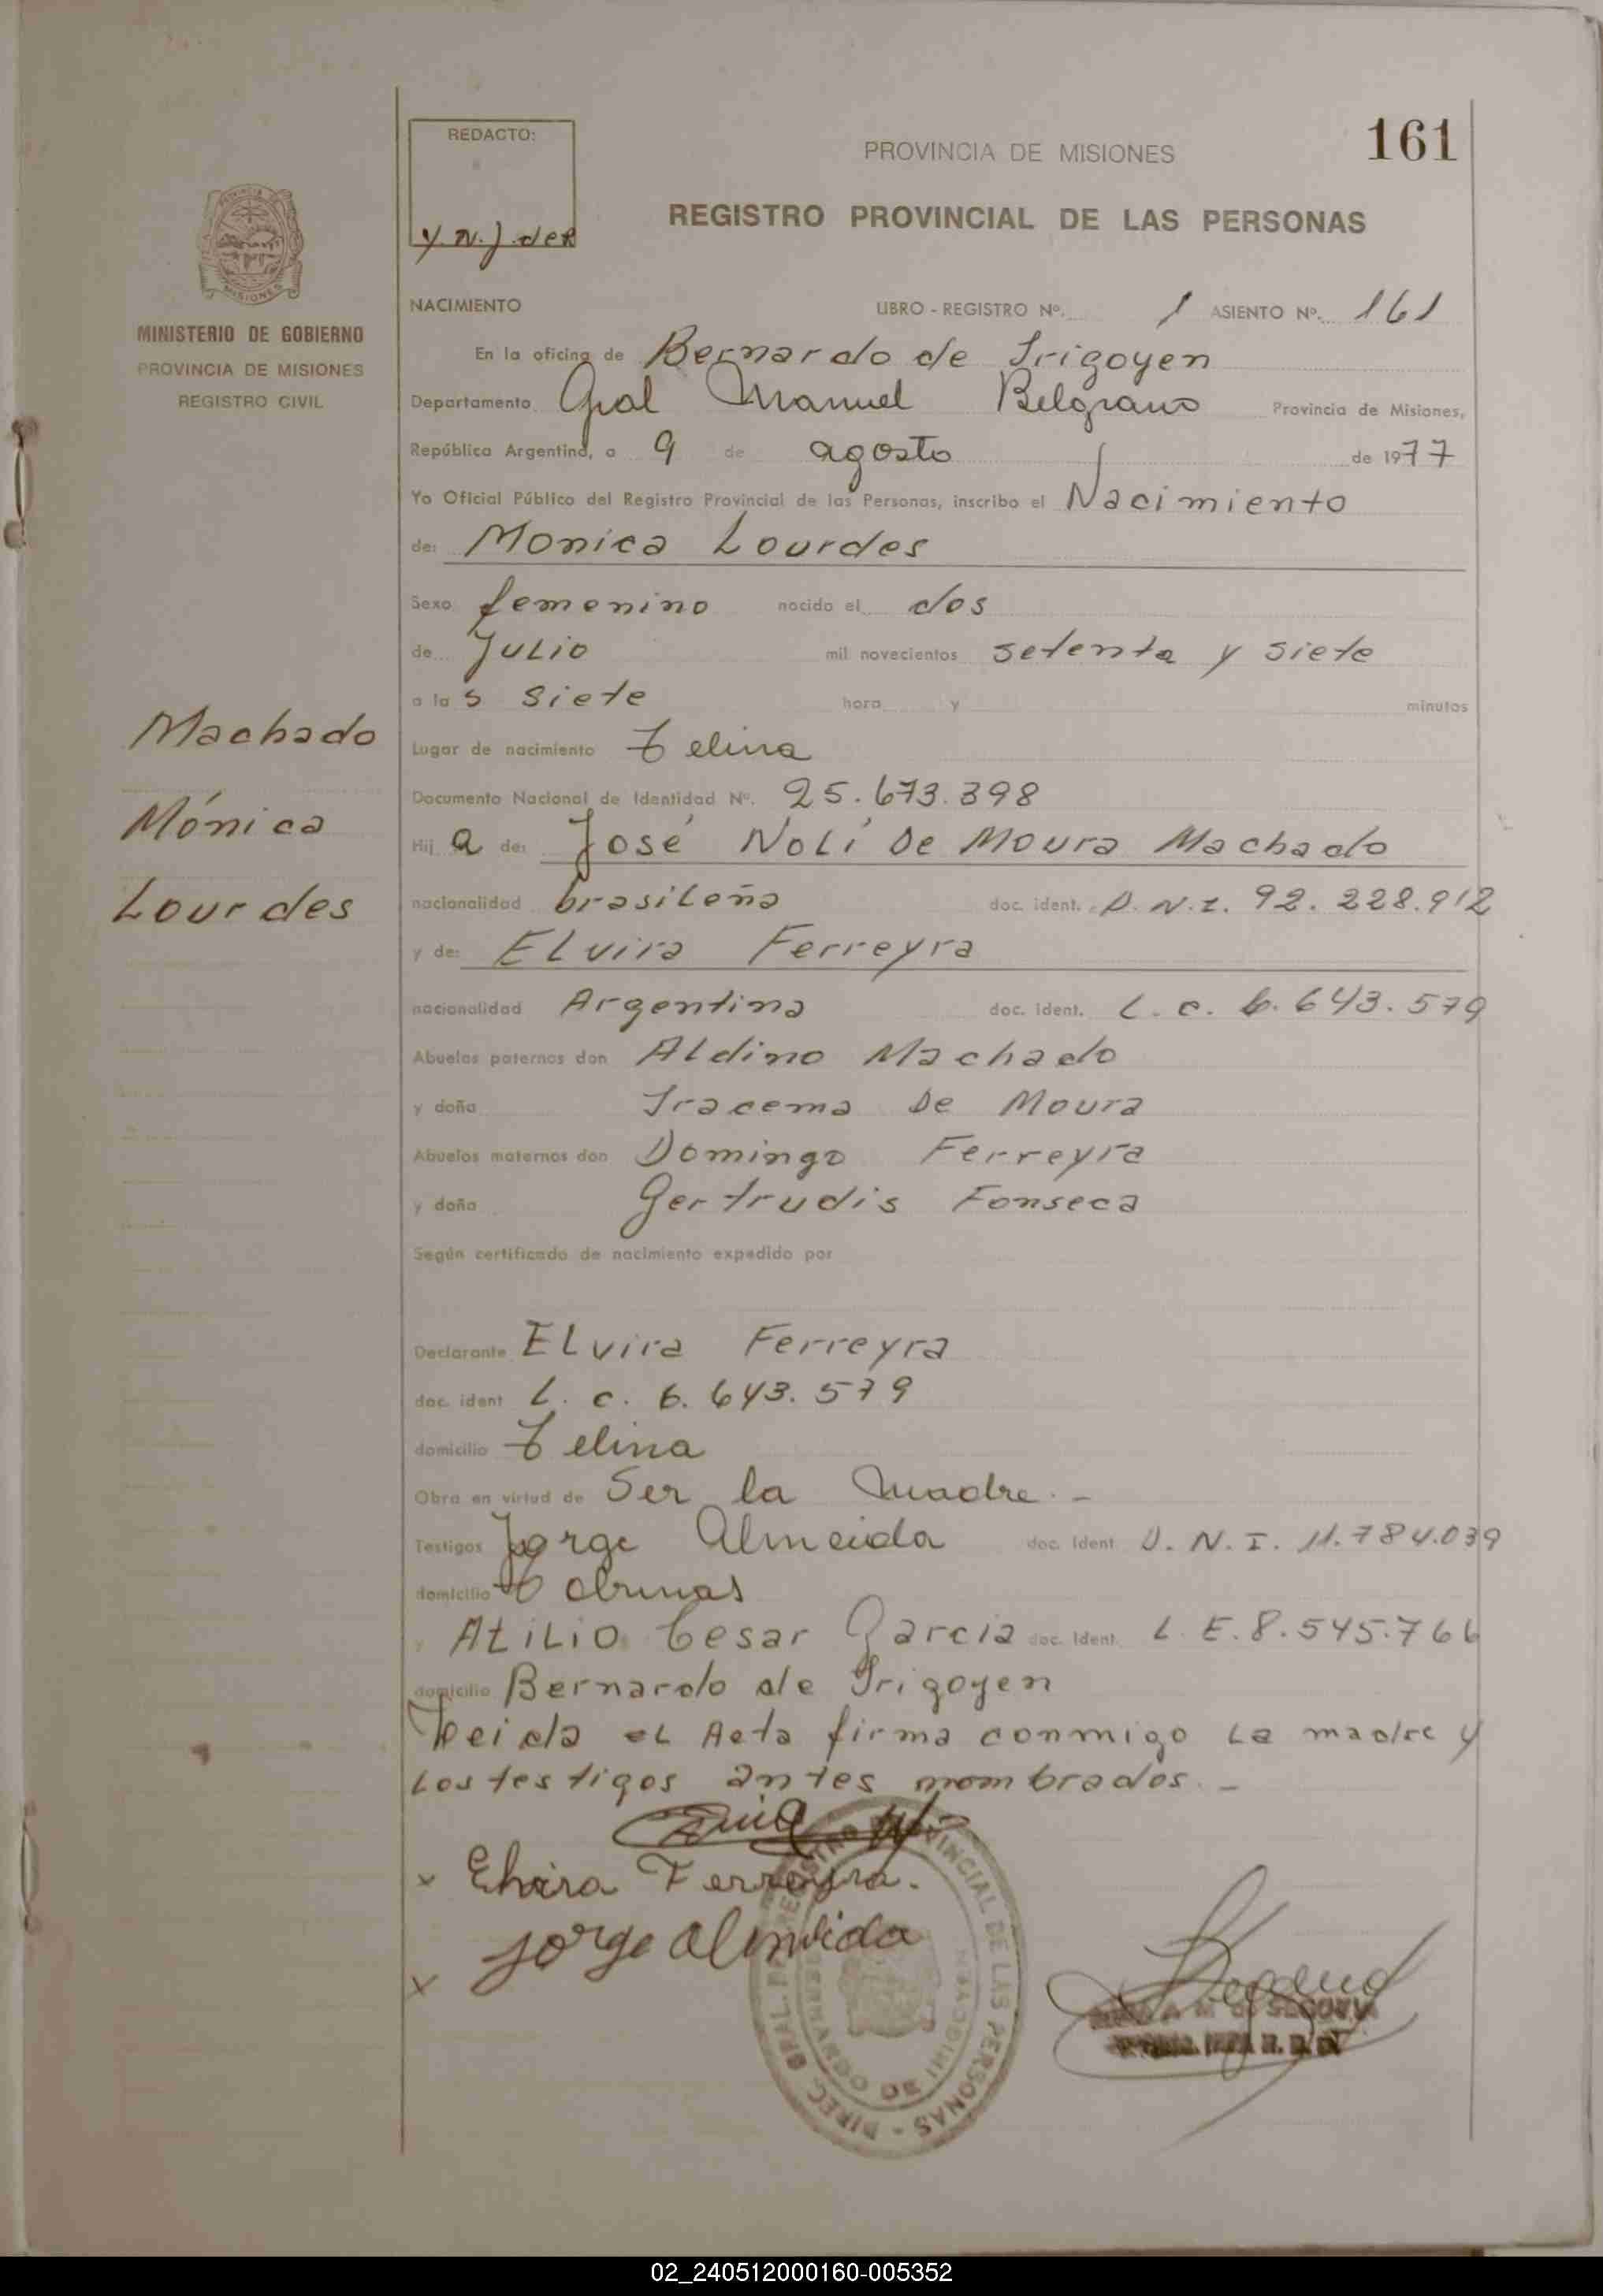 161
REDACTO:
PROVINCIA DE MISIONES
REGISTRO PROVINCIAL DE LAS PERSONAS
MISIONES
MINISTERIO DE GOBIERNO
PROVINCIA DE MISIONES
REGISTRO CIVIL
NACIMIENTO LIBRO - REGISTRO Nº. 1 ASIENTO Nº. 161
En la oficina de Bernardo de Irigoyen
Departamento Gral Manuel Belgrano Provincia de Misiones,
República Argentina, a 9 de agosto de 1977
Yo Oficial Público del Registro Provincial de las Personas, inscribo el Nacimiento
de: Monica Lourdes
Sexo femenino nacido el dos
de Julio mil novecientos setenta y siete
a las siete hora y minutos
Machado
Mónica
Lourdes
Lugar de nacimiento
Documento Nacional de Identidad Nº. 25.673.398
Hija de: José Noli De Moura Machado
nacionalidad brasileña doc. ident. D.N.I. 92.228.912
y de: Elvira Ferreyra
nacionalidad Argentina doc. ident. L.C. 6.643.579
Abuelos paternos don Aldino Machado
y doña Iracema De Moura
Abuelos maternos don Domingo Ferreyra
y doña Gertrudis Fonseca
Según certificado de nacimiento expedido por
Declarante Elvira Ferreyra
doc. ident L.C. 6.643.579
domicilio
Obra en virtud de Ser la Madre.-
Testigos Jorge Almeida doc. Ident. D.N.I. 11.784.039
domicilio
y Atilio Cesar Garcia doc. Ident. L.E. 8.545.766
domicilio Bernardo de Irigoyen
Leida el Acta firma conmigo la madre y
los testigos antes nombrados.-
x Elvira Ferreyra.
x Jorge Almeida
DIREC. GRAL. REGISTRO PROVINCIAL DE LAS PERSONAS
02_240512000160-005352